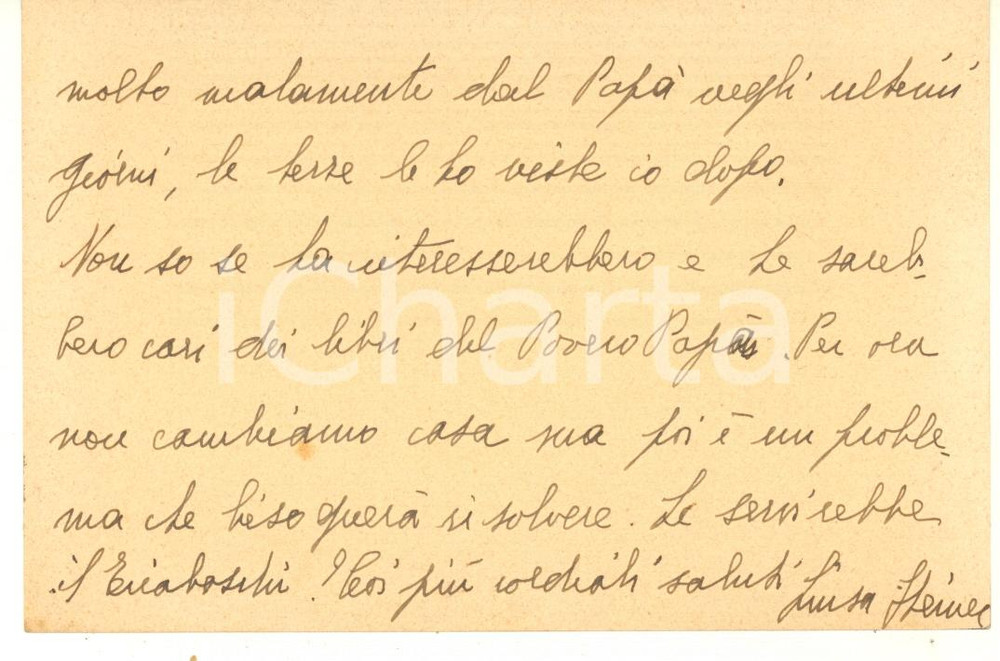 molto malamente dal Papà negli ultimi
giorni, le terze le ho viste io dopo.
Non so se La interesserebbero e Le sareb-
bero cari dei libri del Povero Papà. Per ora
non cambiamo casa ma poi è un proble-
ma che bisognerà risolvere. Le servirebbe
il Tiraboschi? Coi più cordiali saluti Luisa Steiner
iCharta